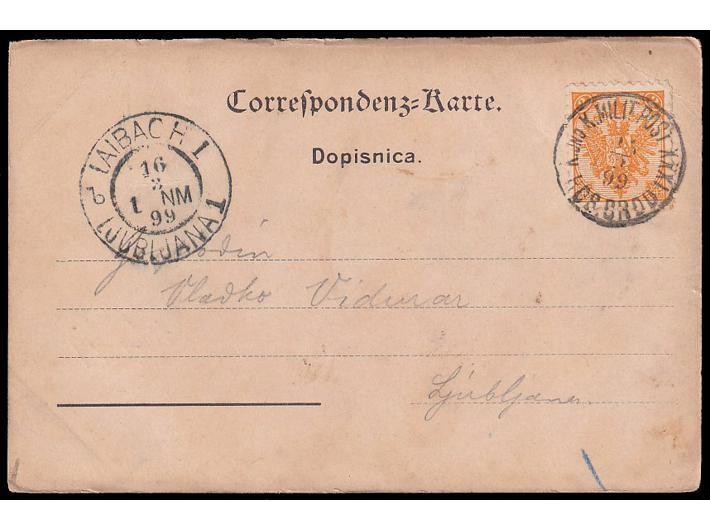 Correspondenz=Karte.
Dopisnica.
K. UND K. MILIT. POST XXXI
99
BROD
LAIBACH 1
16
3
1 NM
99
LJUBLJANA 1
Vladko Vidmar
Ljubljana.